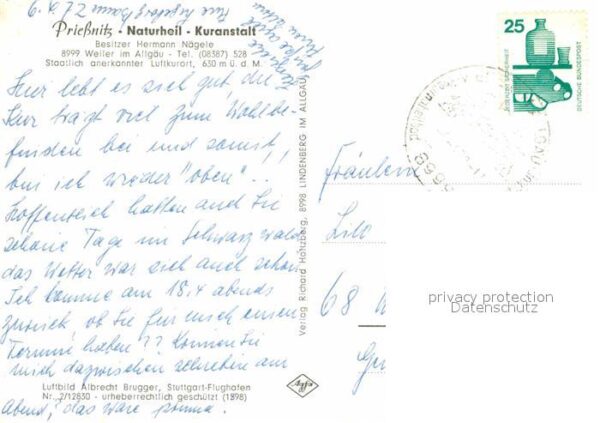 Prießnitz - Naturheil - Kuranstalt
Besitzer Hermann Nägele
8999 Weiler im Allgäu - Tel. (08387) 528
Staatlich anerkannter Luftkurort, 630 m ü. d. M.
Hier lebt es sich gut, die
Kur trägt viel zum Wohlbe-
finden bei und sonst,
bin ich wieder "oben"..
Hoffentlich hatten auch Sie
schöne Tage im Schwarzwald
das Wetter war sich auch schön
Ich komme am 18.4 abends
zurück, ob Sie für mich einen
Termin haben?? Können Sie
mich dazwischen schieben am
Luftbild Albrecht Brugger, Stuttgart-Flughafen
Nr. 2/12830 - urheberrechtlich geschützt (1598)
Abend, das wäre prima.
Verlag Richard Holtzberg, 8998 LINDENBERG IM ALLGÄU
Agfa
25
JEDERZEIT SICHERHEIT
DEUTSCHE BUNDESPOST
Fräulein
Lilo
68
privacy protection
Datenschutz